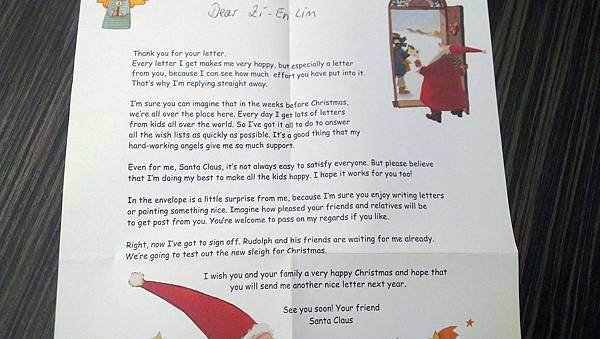 Dear Zi-En Lim
Thank you for your letter.
Every letter I get makes me very happy, but especially a letter
from you, because I can see how much effort you have put into it.
That's why I'm replying straight away.
I'm sure you can imagine that in the weeks before Christmas,
we're all over the place here. Every day I get lots of letters
from kids all over the world. So I've got it all to do to answer
all the wish lists as quickly as possible. It's a good thing that my
hard-working angels give me so much support.
Even for me, Santa Claus, it's not always easy to satisfy everyone. But please believe
that I'm doing my best to make all the kids happy. I hope it works for you too!
In the envelope is a little surprise from me, because I'm sure you enjoy writing letters
or painting something nice. Imagine how pleased your friends and relatives will be
to get post from you. You're welcome to pass on my regards if you like.
Right, now I've got to sign off. Rudolph and his friends are waiting for me already.
We're going to test out the new sleigh for Christmas.
I wish you and your family a very happy Christmas and hope that
you will send me another nice letter next year.
See you soon! Your friend
Santa Claus